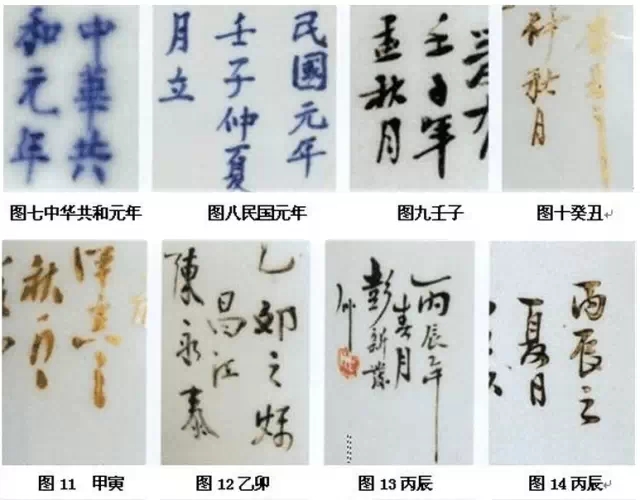 中華共
和元年
图七中华共和元年
民國元年
壬子仲夏
月立
图八民国元年
壬子年
孟秋月
图九壬子
仲秋月
图十癸丑
甲寅之
秋月
图11 甲寅
乙卯之秌
昌江
陳永泰
图12乙卯
丙辰年
春月
图13丙辰
丙辰之
夏月
图14丙辰